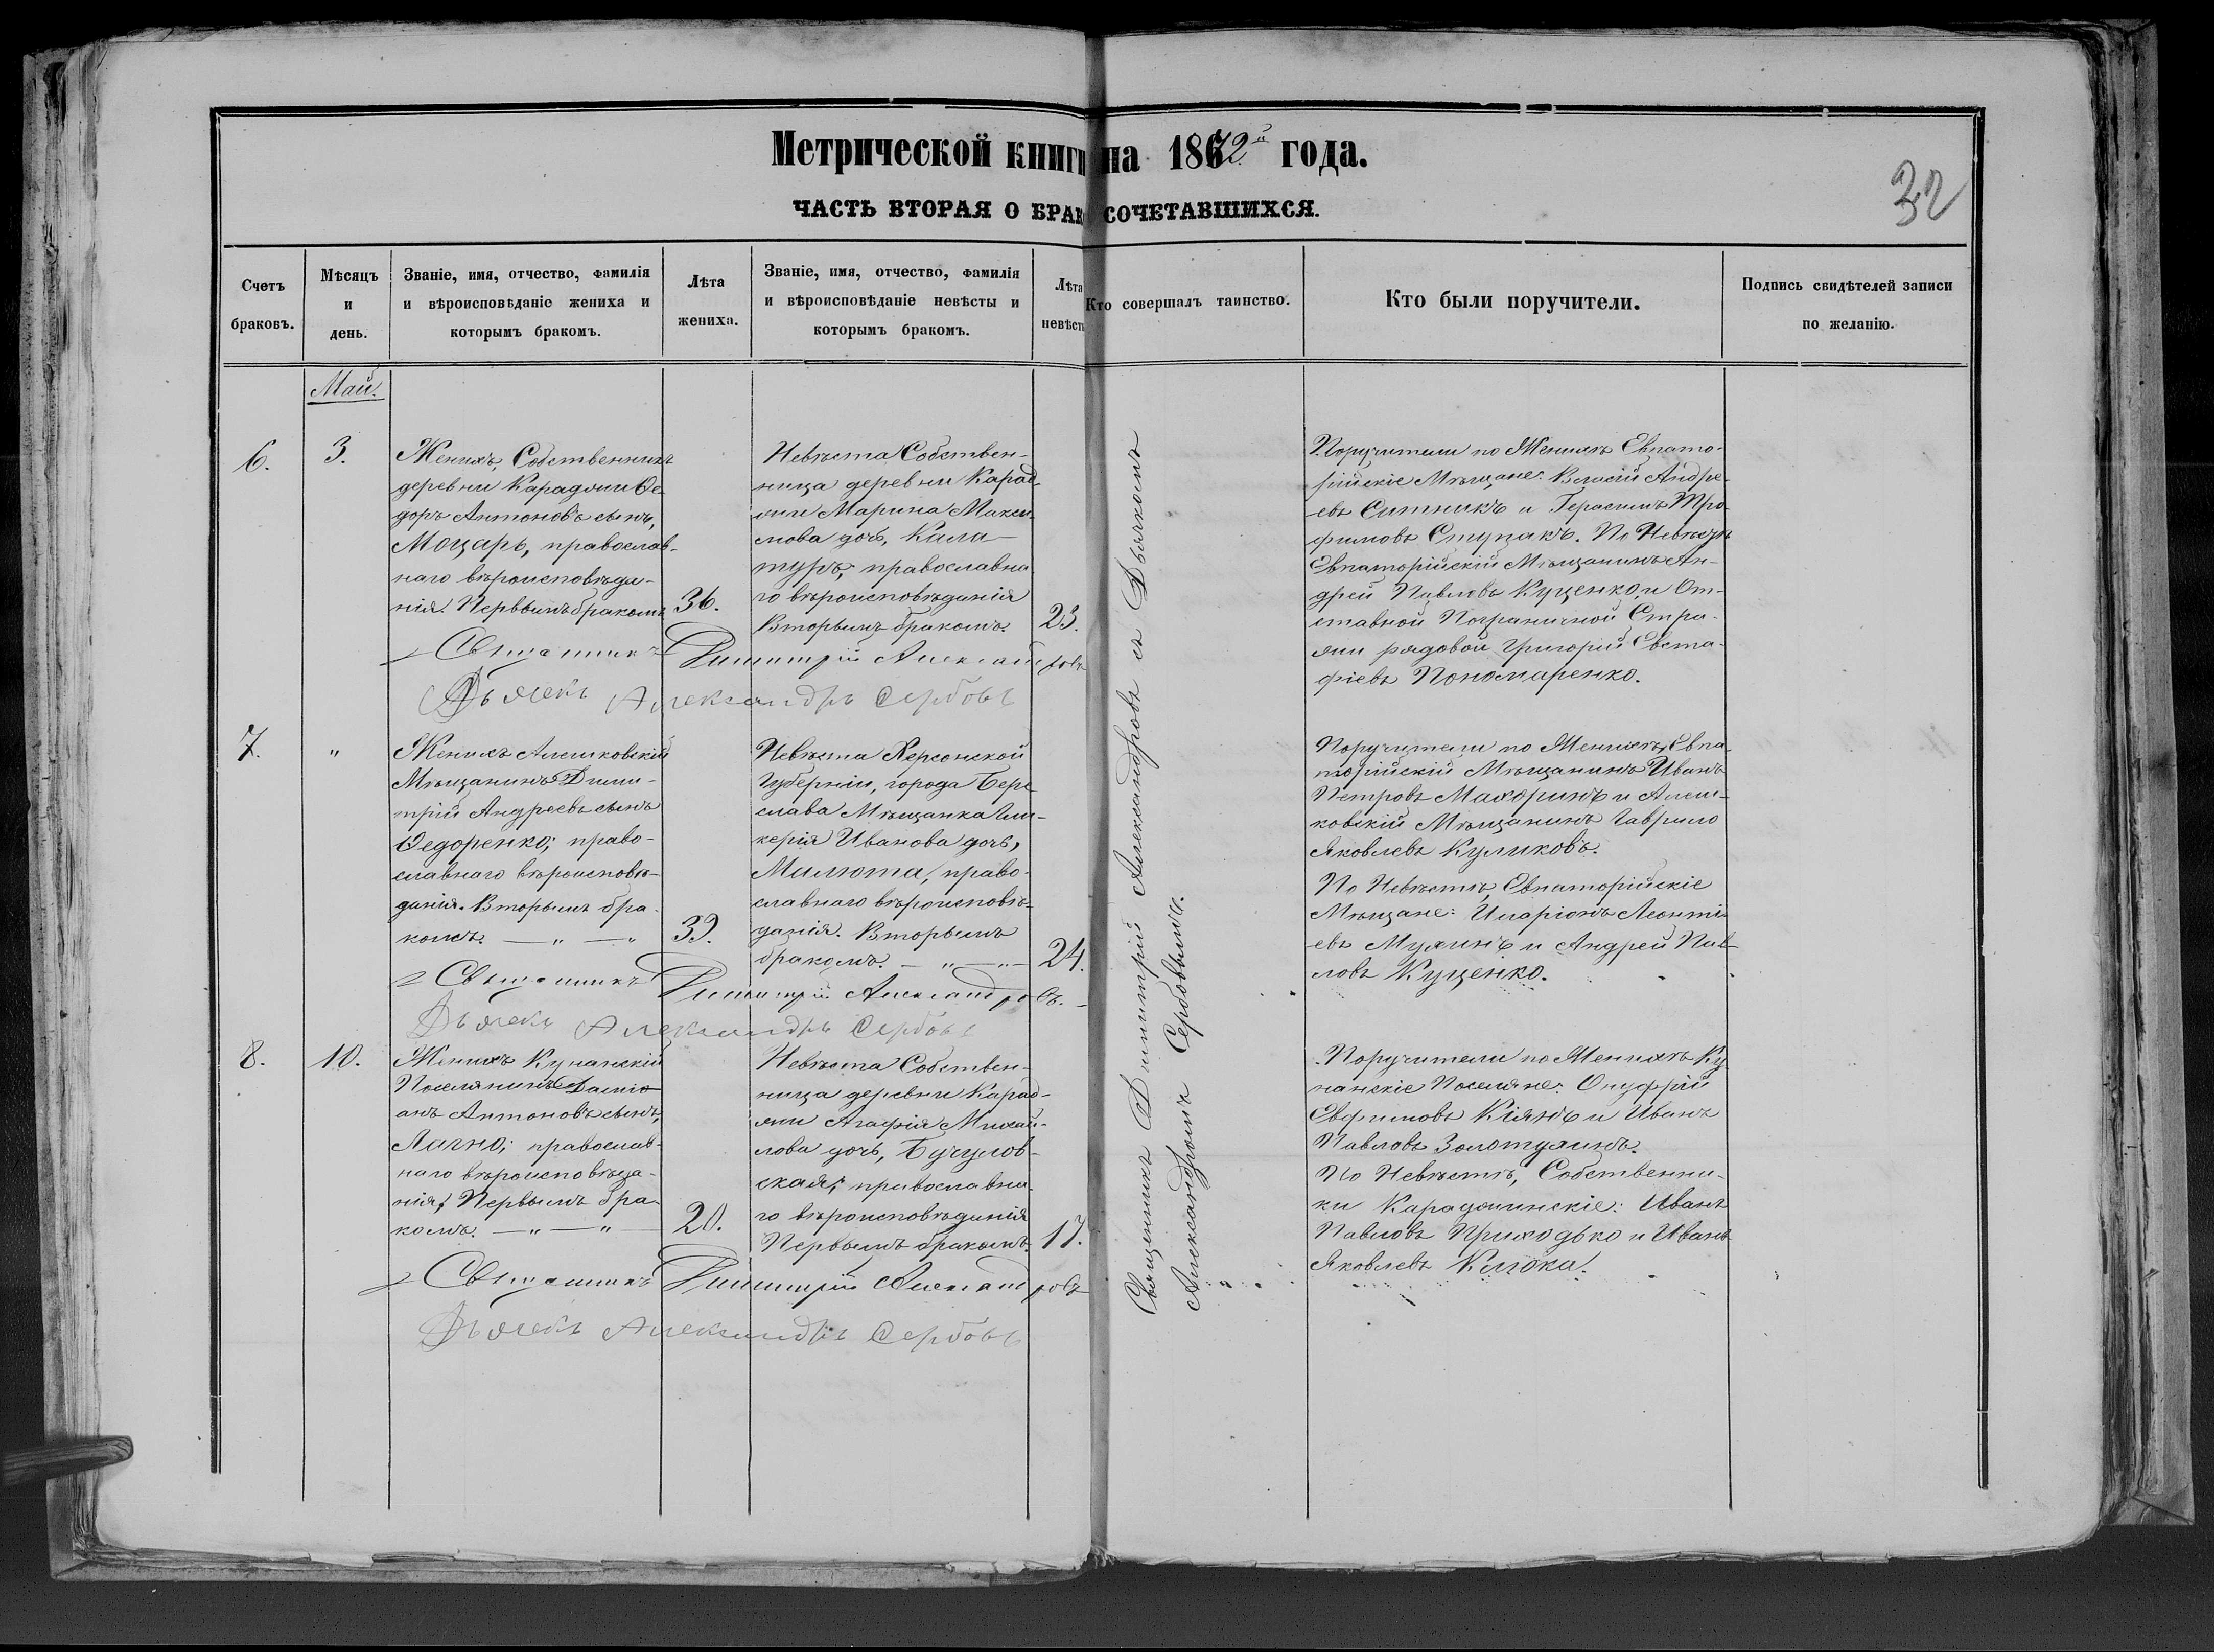 Метрической книги на 1872й года.
32
ЧАСТЬ ВТОРАЯ О БРАКОСОЧЕТАВШИХСЯ.
Счетъ
браковъ.
Мѣсяцъ
и
день.
Званіе, имя, отчество, фамилія
и вѣроисповѣданіе жениха и
которымъ бракомъ.
Лѣта
жениха.
Званіе, имя, отчество, фамилія
и вѣроисповѣданіе невѣсты и
которымъ бракомъ.
Лѣта
невѣсты
Кто совершалъ таинство.
Кто были поручители.
Подпись свидѣтелей записи
по желанію.
Май.
6.
3.
Женихъ, Собственникъ
деревни Караджи Ѳе
доръ Антоновъ сынъ,
Моцарь, православ-
наго вѣроисповѣда-
нія. Первымъ бракомъ
36.
Невѣста Собствен-
ница деревни Карад-
жи Марина Макси-
мова дочь,
православна
го вѣроисповѣданія
Вторымъ бракомъ.
23.
Поручители по Женихѣ Евпато-
рійскіе Мѣщане: Василій Андре-
евъ Ситникъ и Герасимъ Тро-
фимовъ Ступакъ. По Невѣстѣ
Евпаторійскій Мѣщанинъ Ан-
дрей Павловъ Куценко, и От-
ставной Пограничной Стра-
жи рядовой Григорій Евста-
фіевъ Пономаренко.
Священникъ Димитрій Александровъ
Дьячекъ Александръ Сербовъ
7.
"
Женихъ Алешковскій
Мѣщанинъ Дими-
трій Андреевъ сынъ
Ѳедоренко; право-
славнаго вѣроисповѣ-
данія. Вторымъ бра-
комъ. — " — "
39.
Невѣста Херсонской
Губерніи, города Бере
слава Мѣщанка Гли-
керія Иванова дочь,
Малюта, право-
славнаго вѣроисповѣ-
данія. Вторымъ
бракомъ. — " — " —
24.
Поручители по Женихѣ, Евпа-
торійскій Мѣщанинъ Иванъ
Петровъ Махоринъ и Алеш-
ковскій Мѣщанинъ Гаврило
Яковлевъ Куликовъ.
По Невѣстѣ, Евпаторійскіе
Мѣщане: Иларіонъ Леонті-
евъ Мухинъ и Андрей Пав-
ловъ Куценко.
Священникъ Димитрій Александровъ. —
Дьячекъ Александръ Сербовъ
8.
10.
Женихъ Кунанскій
Поселянинъ Даміа
анъ Антоновъ сынъ,
православ-
наго вѣроисповѣда-
нія, Первымъ бра-
комъ. — " — " —
20.
Невѣста Собствен-
ница деревни Карад-
жи Агафія Михай-
лова дочь,
православна-
го вѣроисповѣданія
Первымъ бракомъ.
17.
Поручители по Женихѣ Ку
нанскіе Поселяне: Онуфрій
Евфимовъ Кіянъ и Иванъ
Павловъ Золотухинъ.
По Невѣстѣ, Собственни-
ки Караджинскіе: Иванъ
Павловъ Приходько и Иванъ
Яковлевъ Клюка.
Священникъ Димитрій Александровъ
Дьячекъ Александръ Сербовъ
Священникъ Димитрій Александровъ съ Дьячкомъ
Александромъ Сербовымъ.